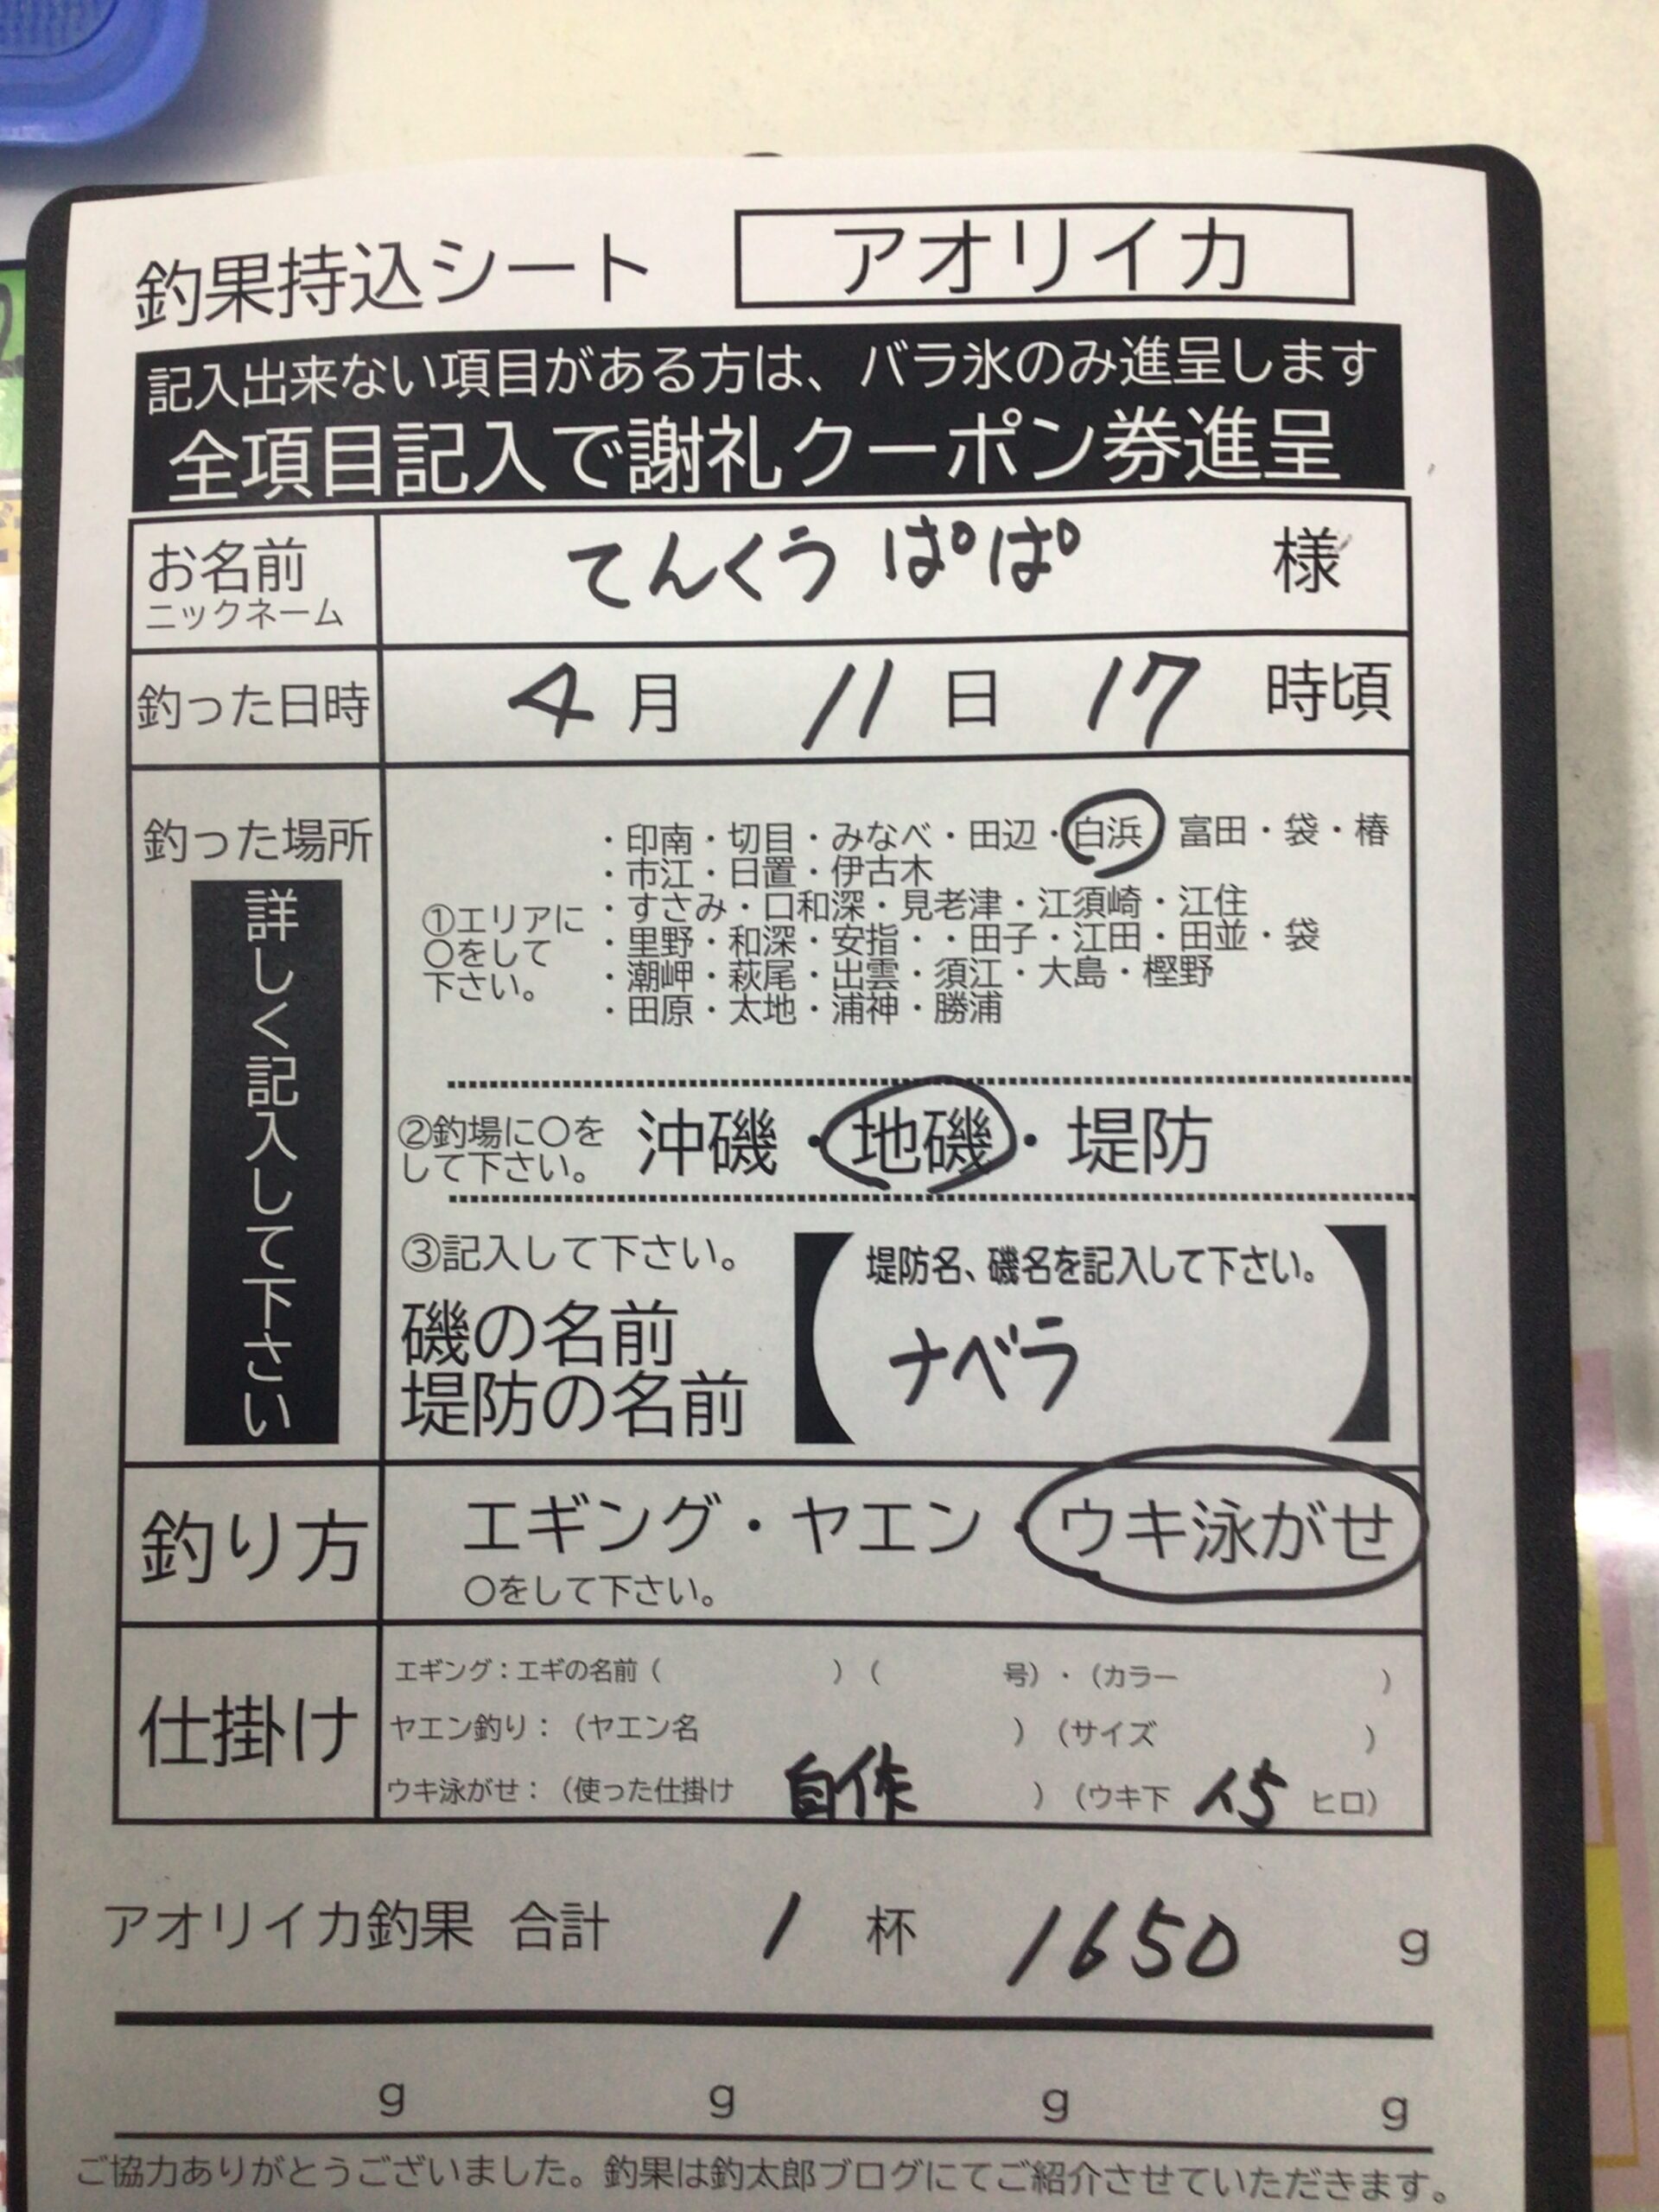 釣果持込シート アオリイカ
記入出来ない項目がある方は、バラ氷のみ進呈します
全項目記入で謝礼クーポン券進呈
お名前 てんくう ぱぱ 様
ニックネーム
釣った日時 4月 11日 17時頃
釣った場所
詳しく記入して下さい
①エリアに
〇をして
下さい。
・印南・切目・みなべ・田辺・白浜 富田・袋・椿
・市江・日置・伊古木
・すさみ・口和深・見老津・江須崎・江住
・里野・和深・安指・・田子・江田・田並・袋
・潮岬・萩尾・出雲・須江・大島・樫野
・田原・太地・浦神・勝浦
②釣場に〇を
して下さい。
沖磯・地磯・堤防
③記入して下さい。
磯の名前
堤防の名前
【堤防名、磯名を記入して下さい。
ナベラ】
釣り方 エギング・ヤエン・ウキ泳がせ
〇をして下さい。
仕掛け
エギング：エギの名前（ ）（ 号）・（カラー ）
ヤエン釣り：（ヤエン名 ）（サイズ ）
ウキ泳がせ：（使った仕掛け 自作 ）（ウキ下 ヒロ）
アオリイカ釣果 合計 1杯 1650 g
g g g g
ご協力ありがとうございました。釣果は釣太郎ブログにてご紹介させていただきます。